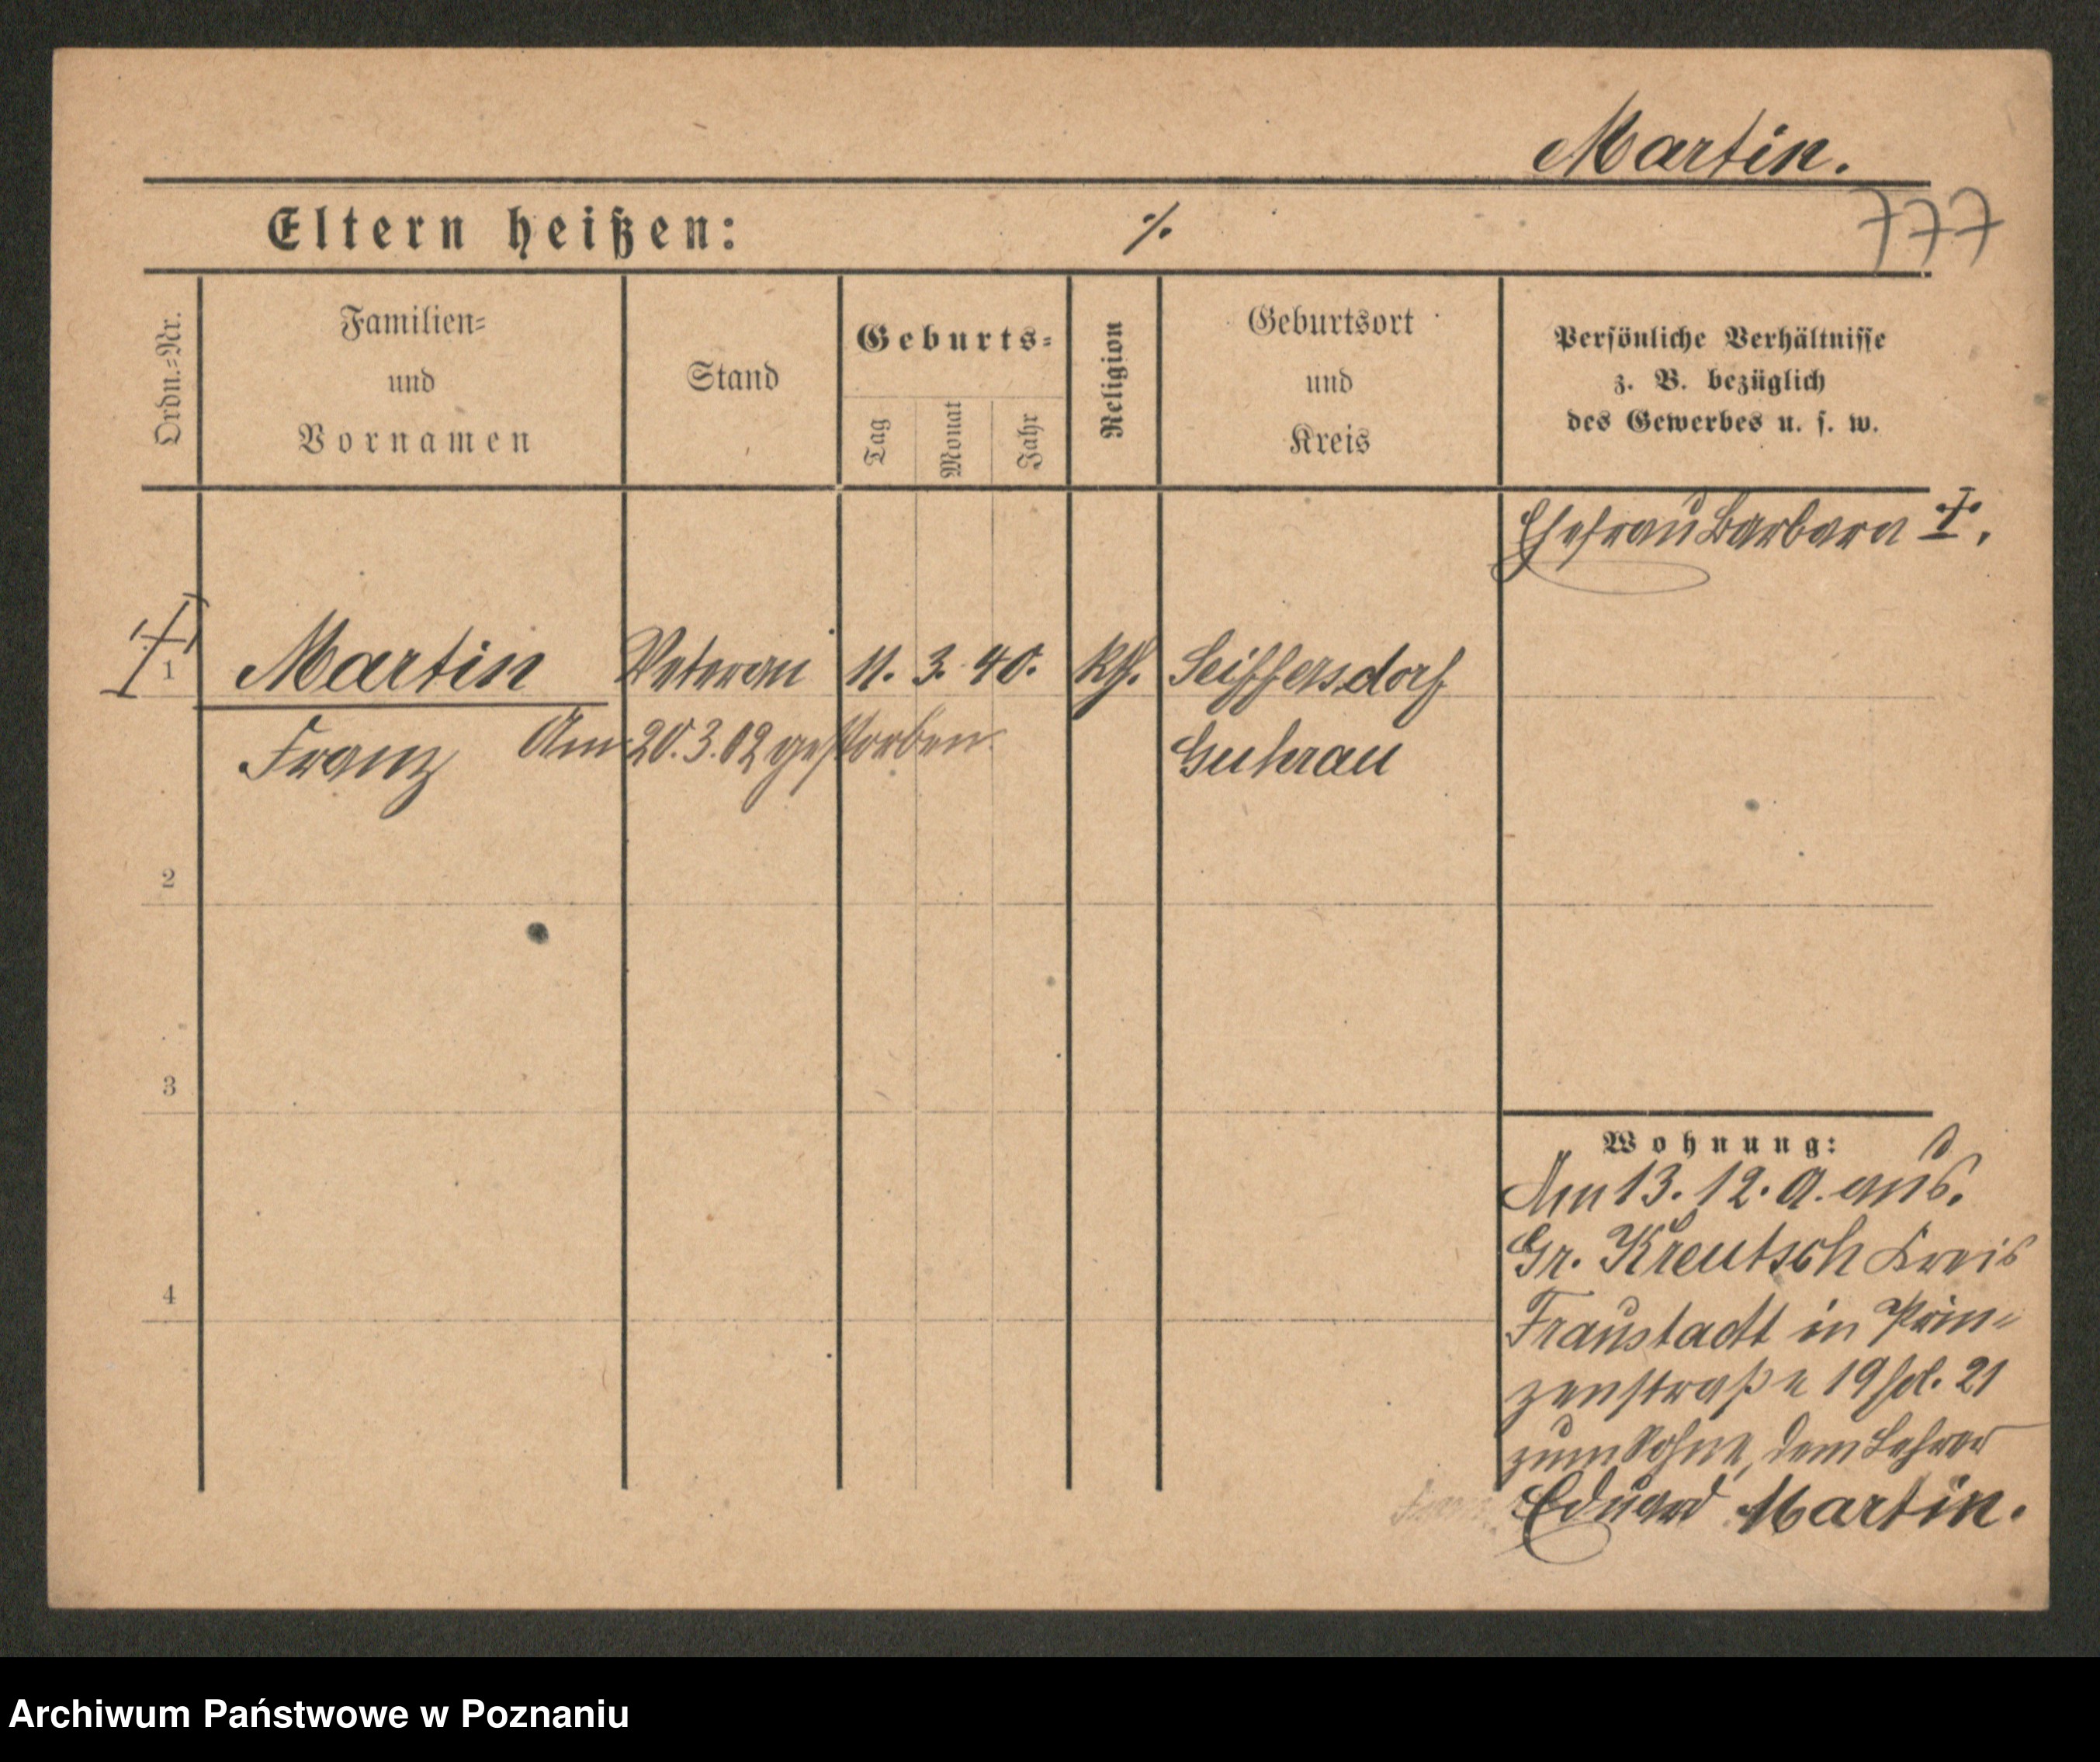 Martin.
777
Eltern heißen: ⁒
Ordn.-Nr.
Familien-
und
Vornamen
Stand
Geburts-
Tag
Monat
Jahr
Religion
Geburtsort
und
Kreis
Persönliche Verhältnisse
z. B. bezüglich
des Gewerbes u. s. w.
Ehefrau Barbara †.
† 1 Martin Veteran 11. 3. 40. kth. Seiffersdorf
Franz Am 20.3.02 gestorben. Guhrau
2
3
4
Wohnung:
Am 13. 12. 9. aus.
Gr. Kreutsch Kreis
Fraustadt in Prin-
zenstraße 19 Hol. 21
zum Sohne, dem Lehrer
Eduard Martin.
Archiwum Państwowe w Poznaniu